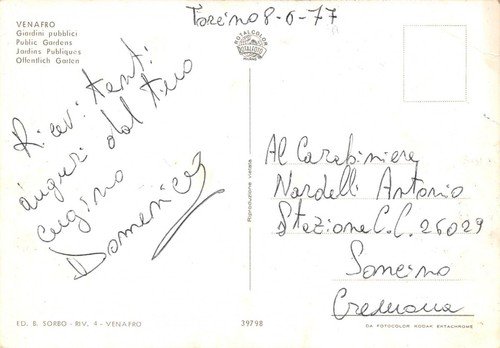 Torino 8-6-77
VENAFRO
Giardini pubblici
Public Gardens
Jardins Publiques
Offentlich Garten
ROTALCOLOR
ROTALFOTO
MILANO
Ricevi tanti
auguri dal tuo
cugino
Domenico
Riproduzione vietata
Al Carabiniere
Nardelli Antonio
Stazione C.C. 26029
Soncino
Cremona
ED. B. SORBO - RIV. 4 - VENAFRO
39798
DA FOTOCOLOR KODAK EKTACHROME